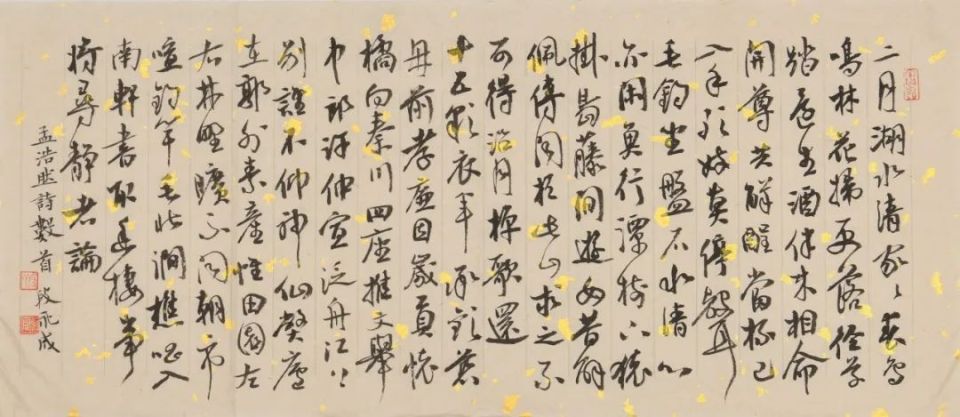 二月湖水清家々春鳥
鳴林花掃更落徑草
踏還生酒伴來相命
開尊共解酲當杯已
入手歌妓莫停聲
垂釣坐盤石水清心
亦閑魚行潭樹下猿
掛島藤間遊女昔解
佩傳聞於此山求之不
可得沿月棹歌還
十五彩衣年承歡慈
母前孝廉因歲貢懷
橘向秦川四座推文舉
中郎許仲宣泛舟江上
別誰不仰神仙弊廬
在郭外素產惟田園左
右林野曠不聞朝市
喧釣竿垂北澗樵唱入
南軒書取幽棲事
將尋靜者論
孟浩然詩數首 永成